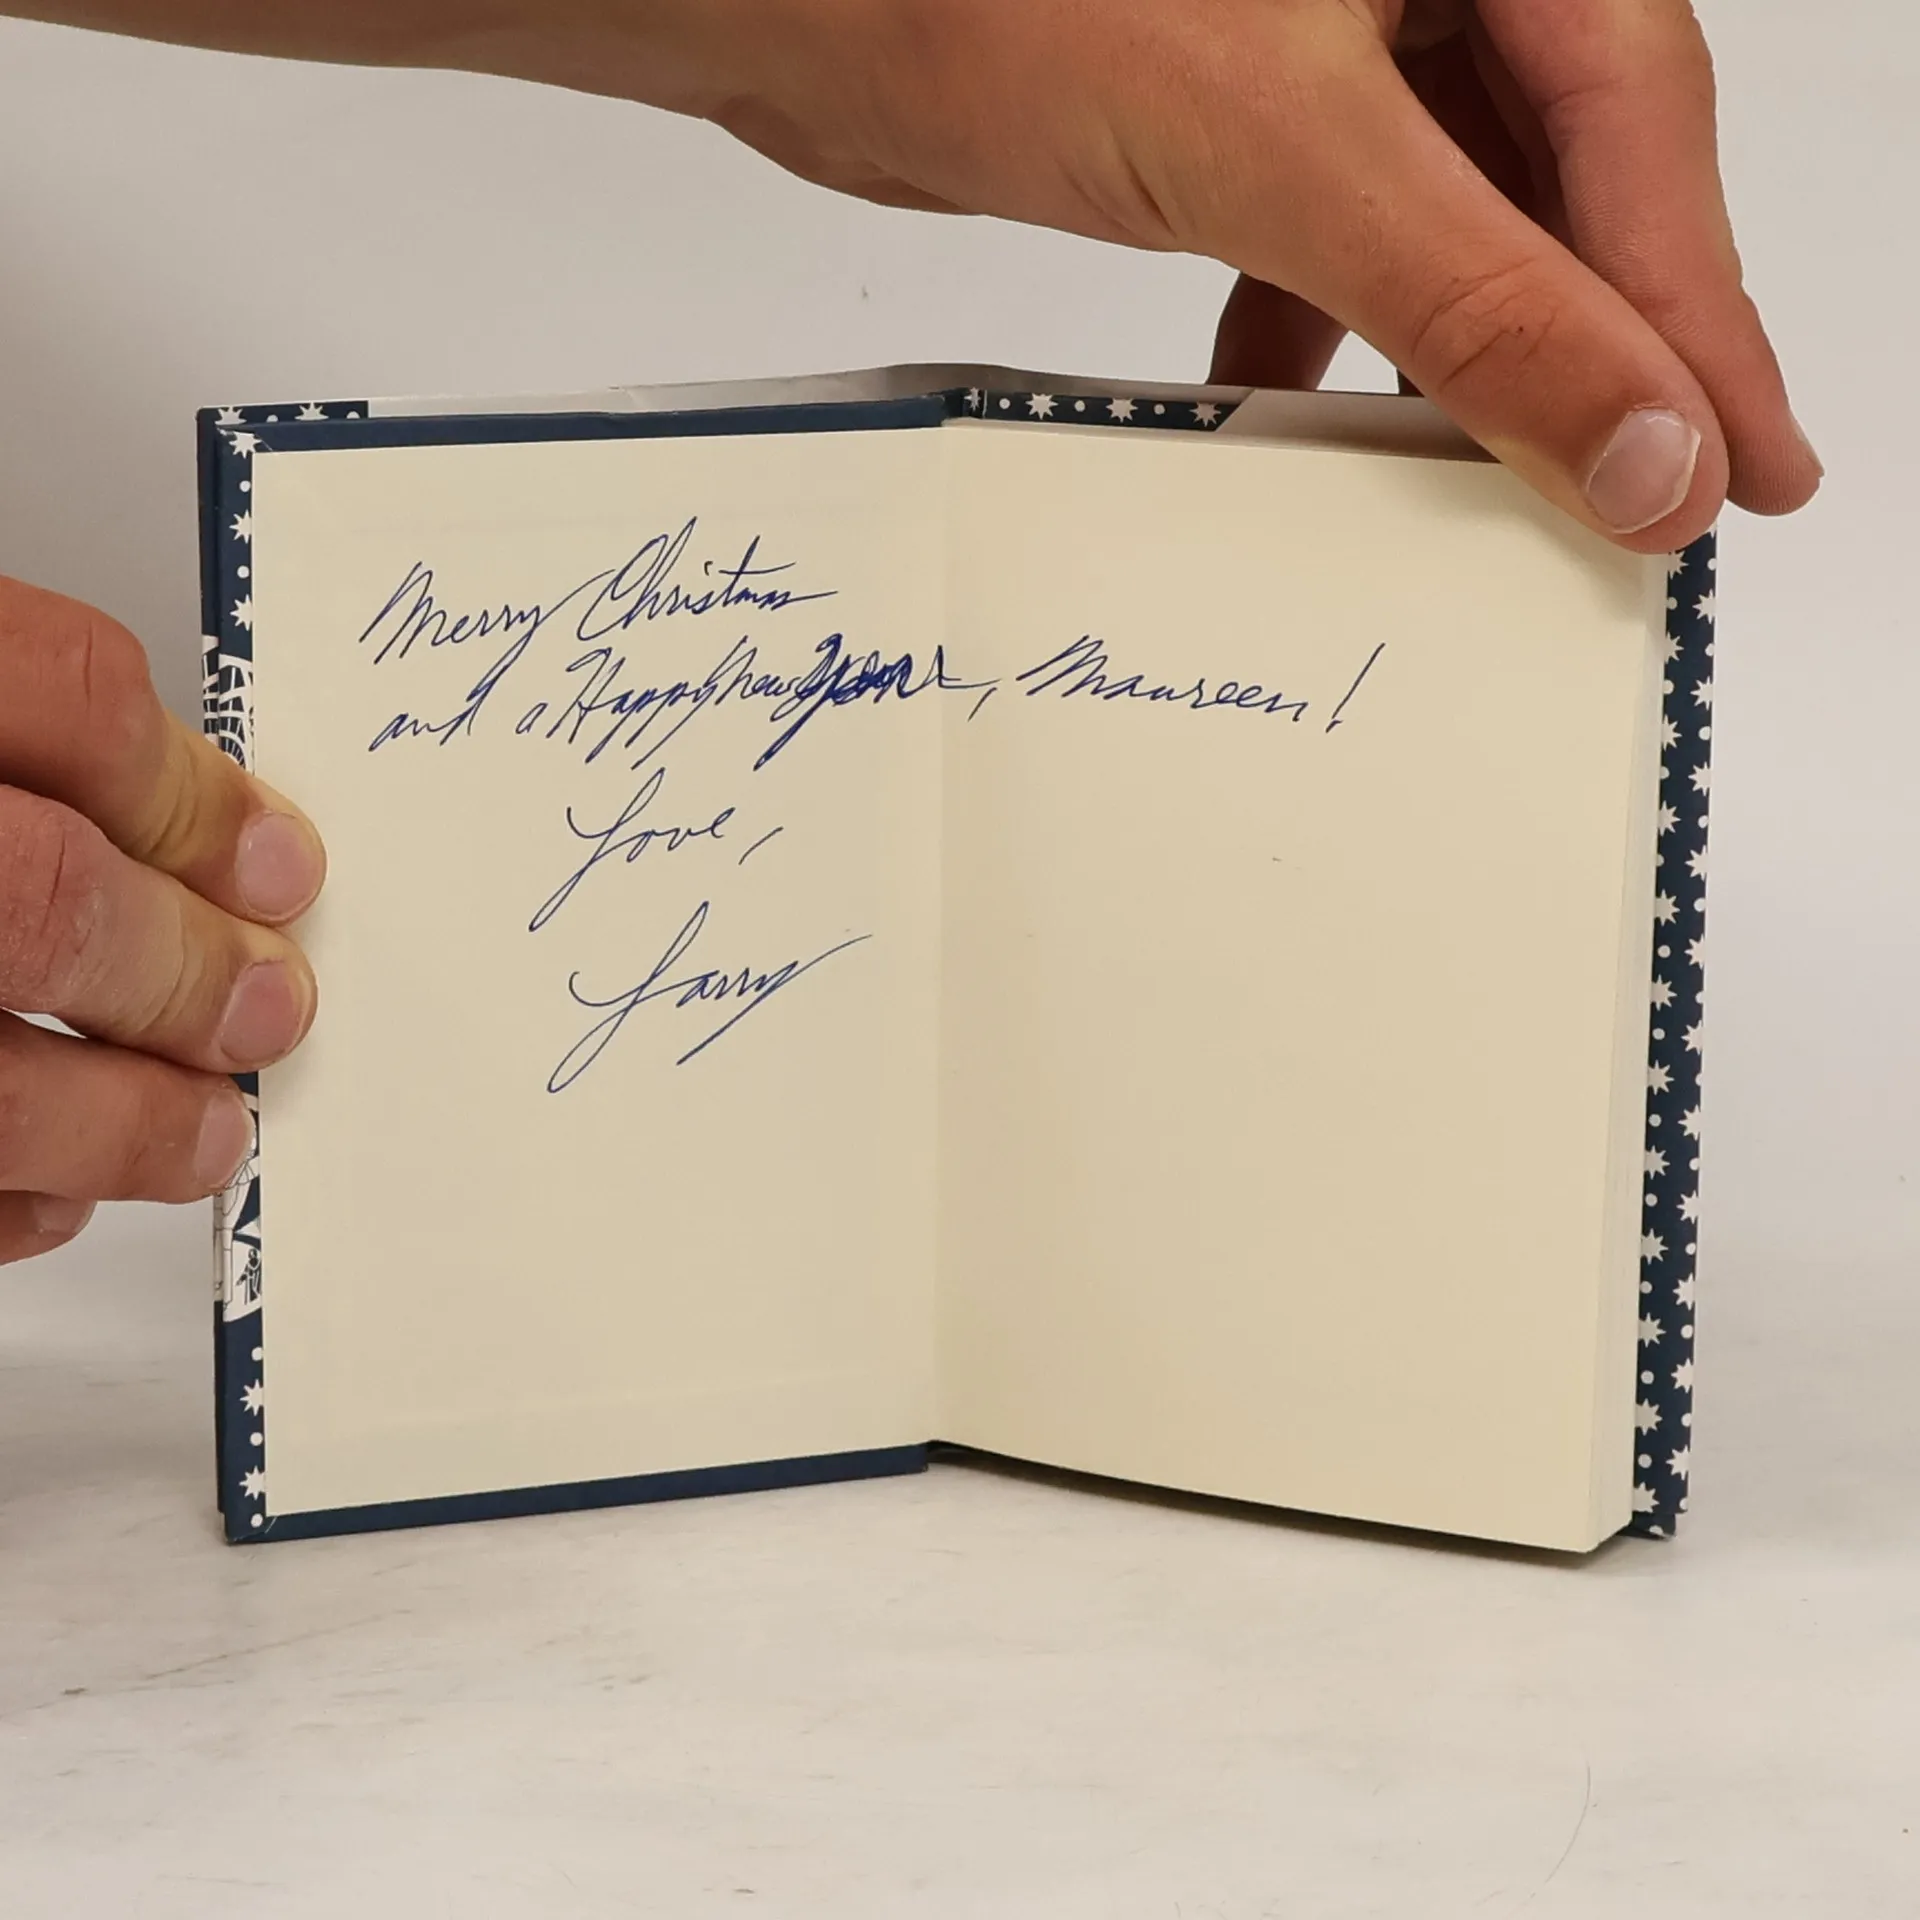 Merry Christmas
and a Happy New Year, Maureen!
Love,
Larry